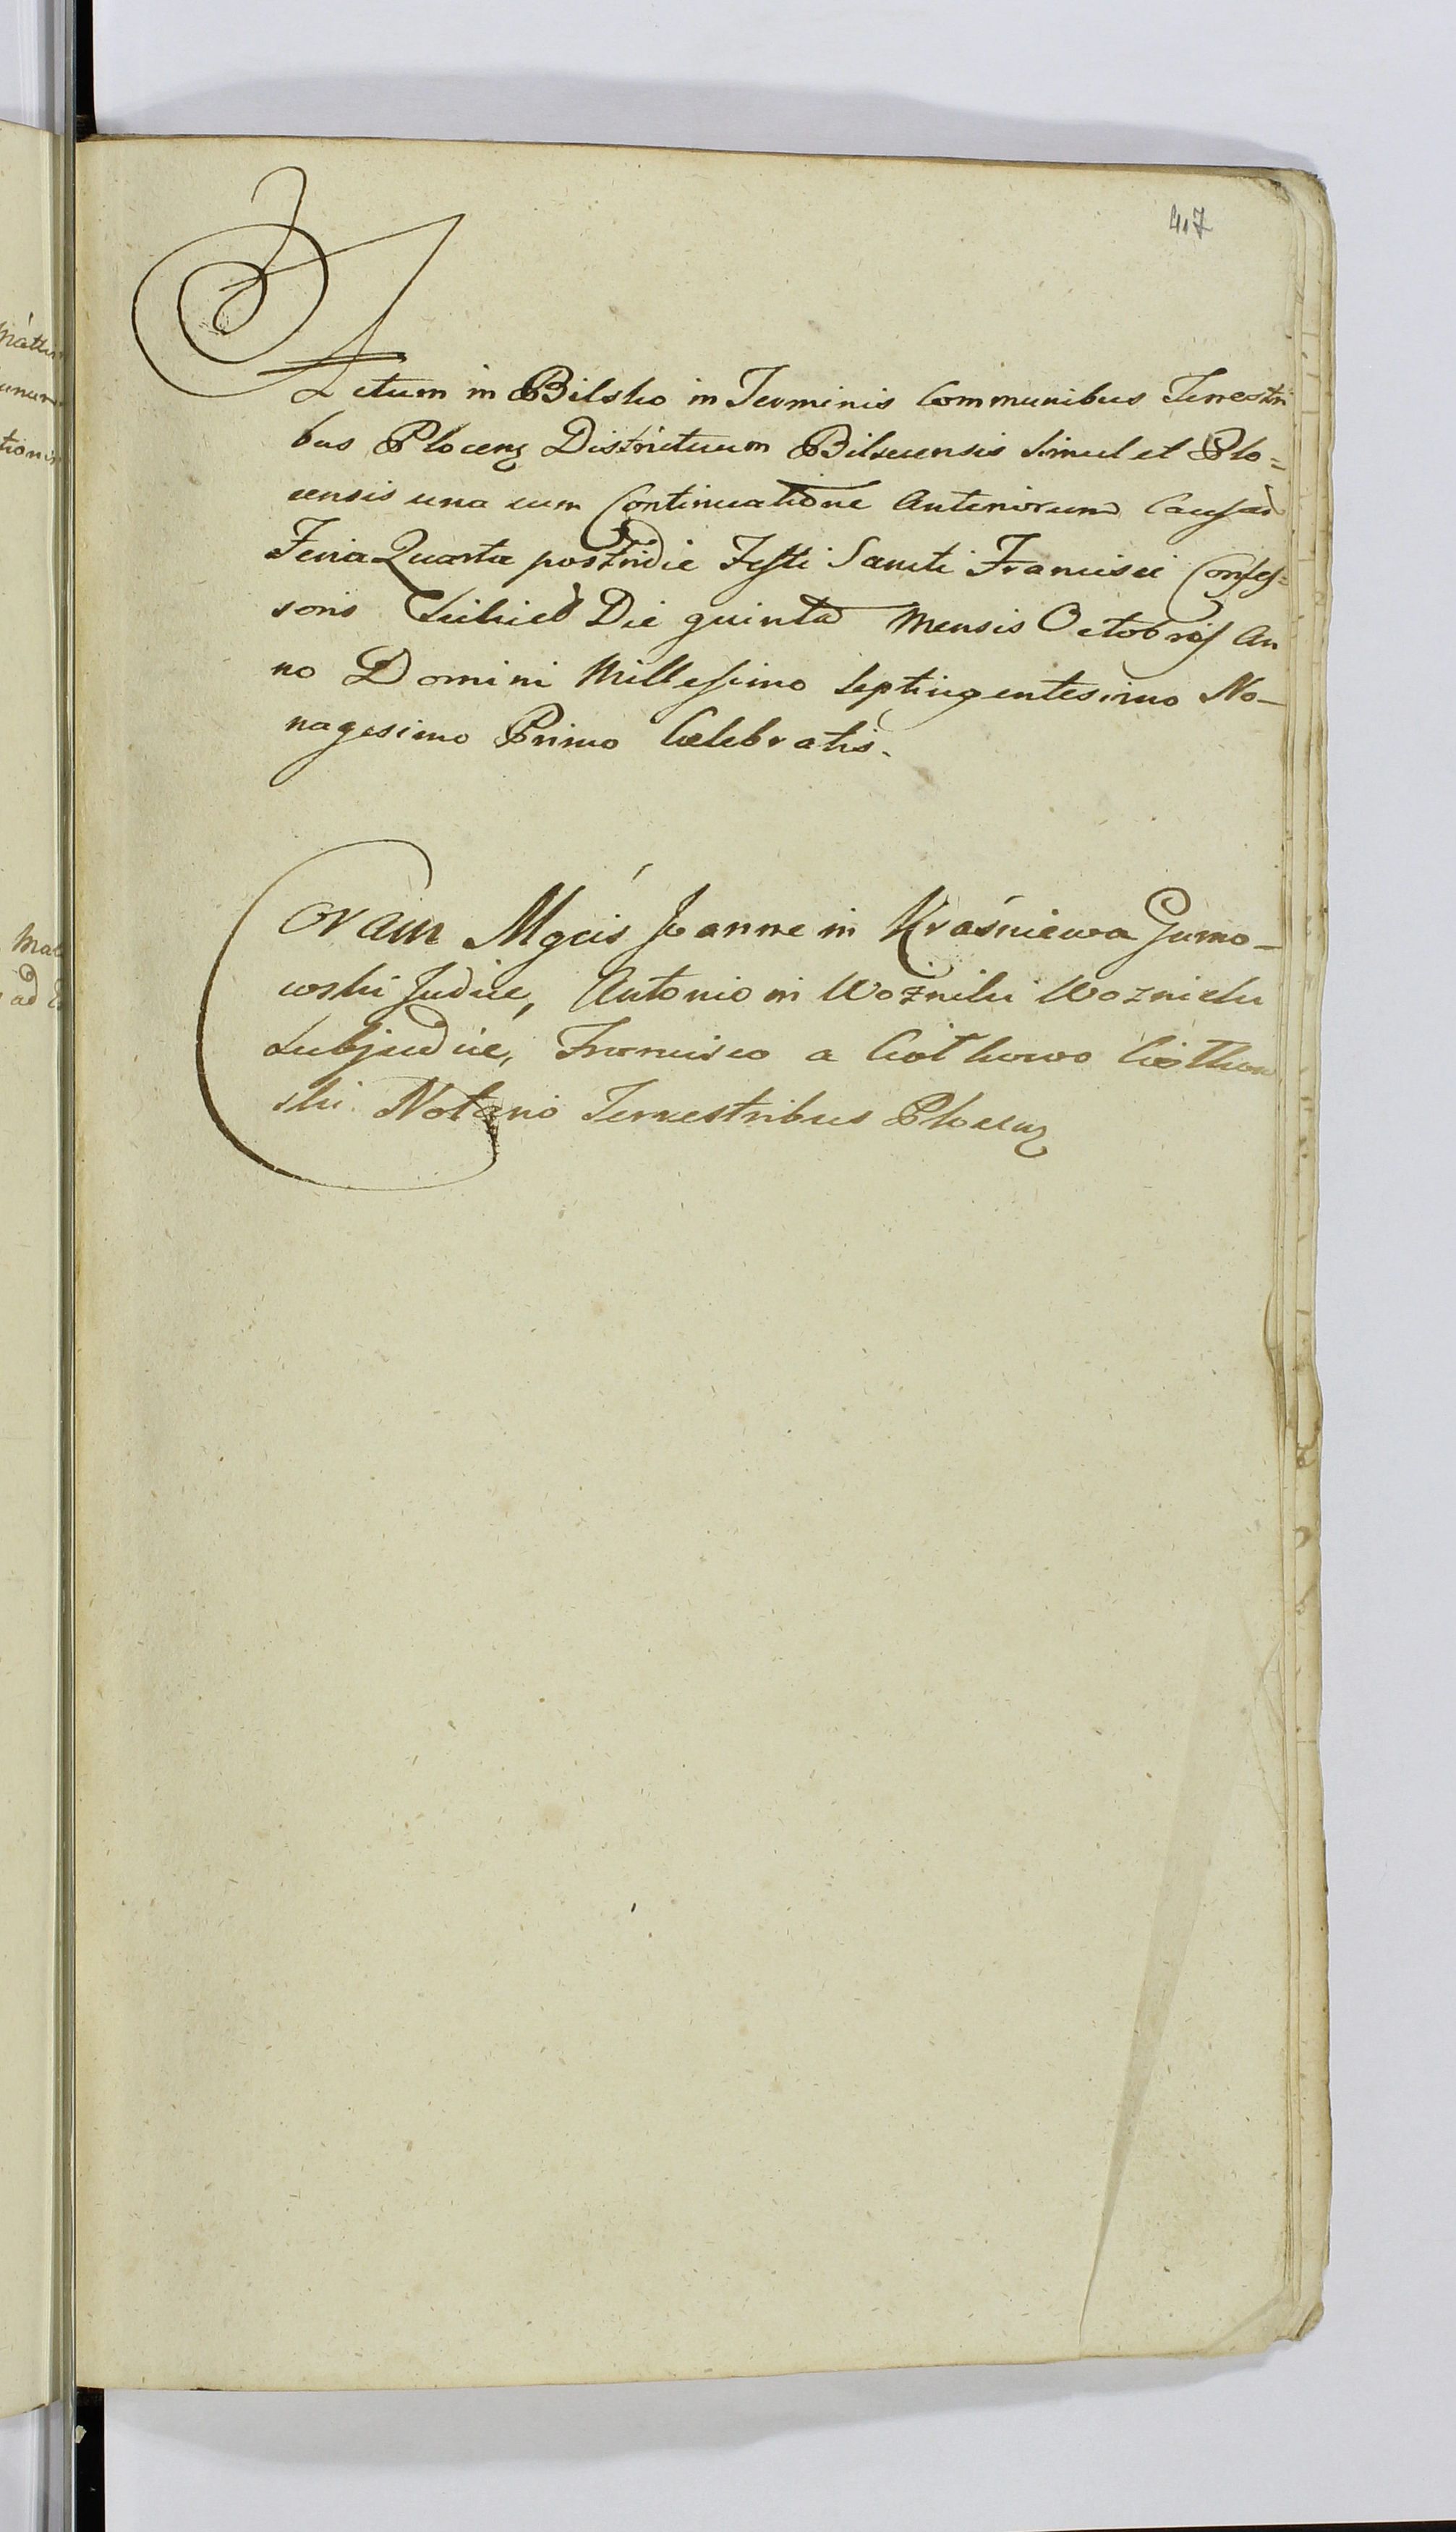 417
Actum in Bilsko in Terminis Communibus Terrestri
bus Plocens Districtuum Bilscensis simul et Plo=
censis una cum Continuatione Anteriorum Causar
Feria Quarta postridie Festi Sancti Francisci Confes=
soris Die quinta Mensis Octobris An
no Domini Millesimo Septingentesimo No-
nagesimo Primo Celebratis.
Coram Mgcis Joanne in Kraśniewa Gumo-
wski Judice, Antonio in Woźniki Woznicki
Subjudice, Francisco a
ski Notario Terrestribus Plocens